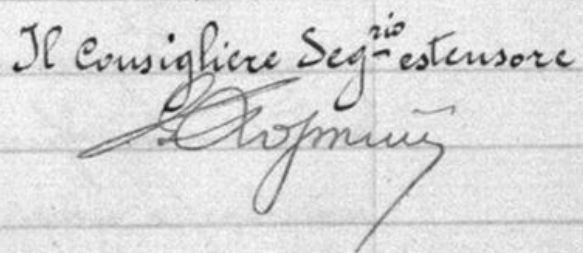 Il Consigliere Seg.rio estensore